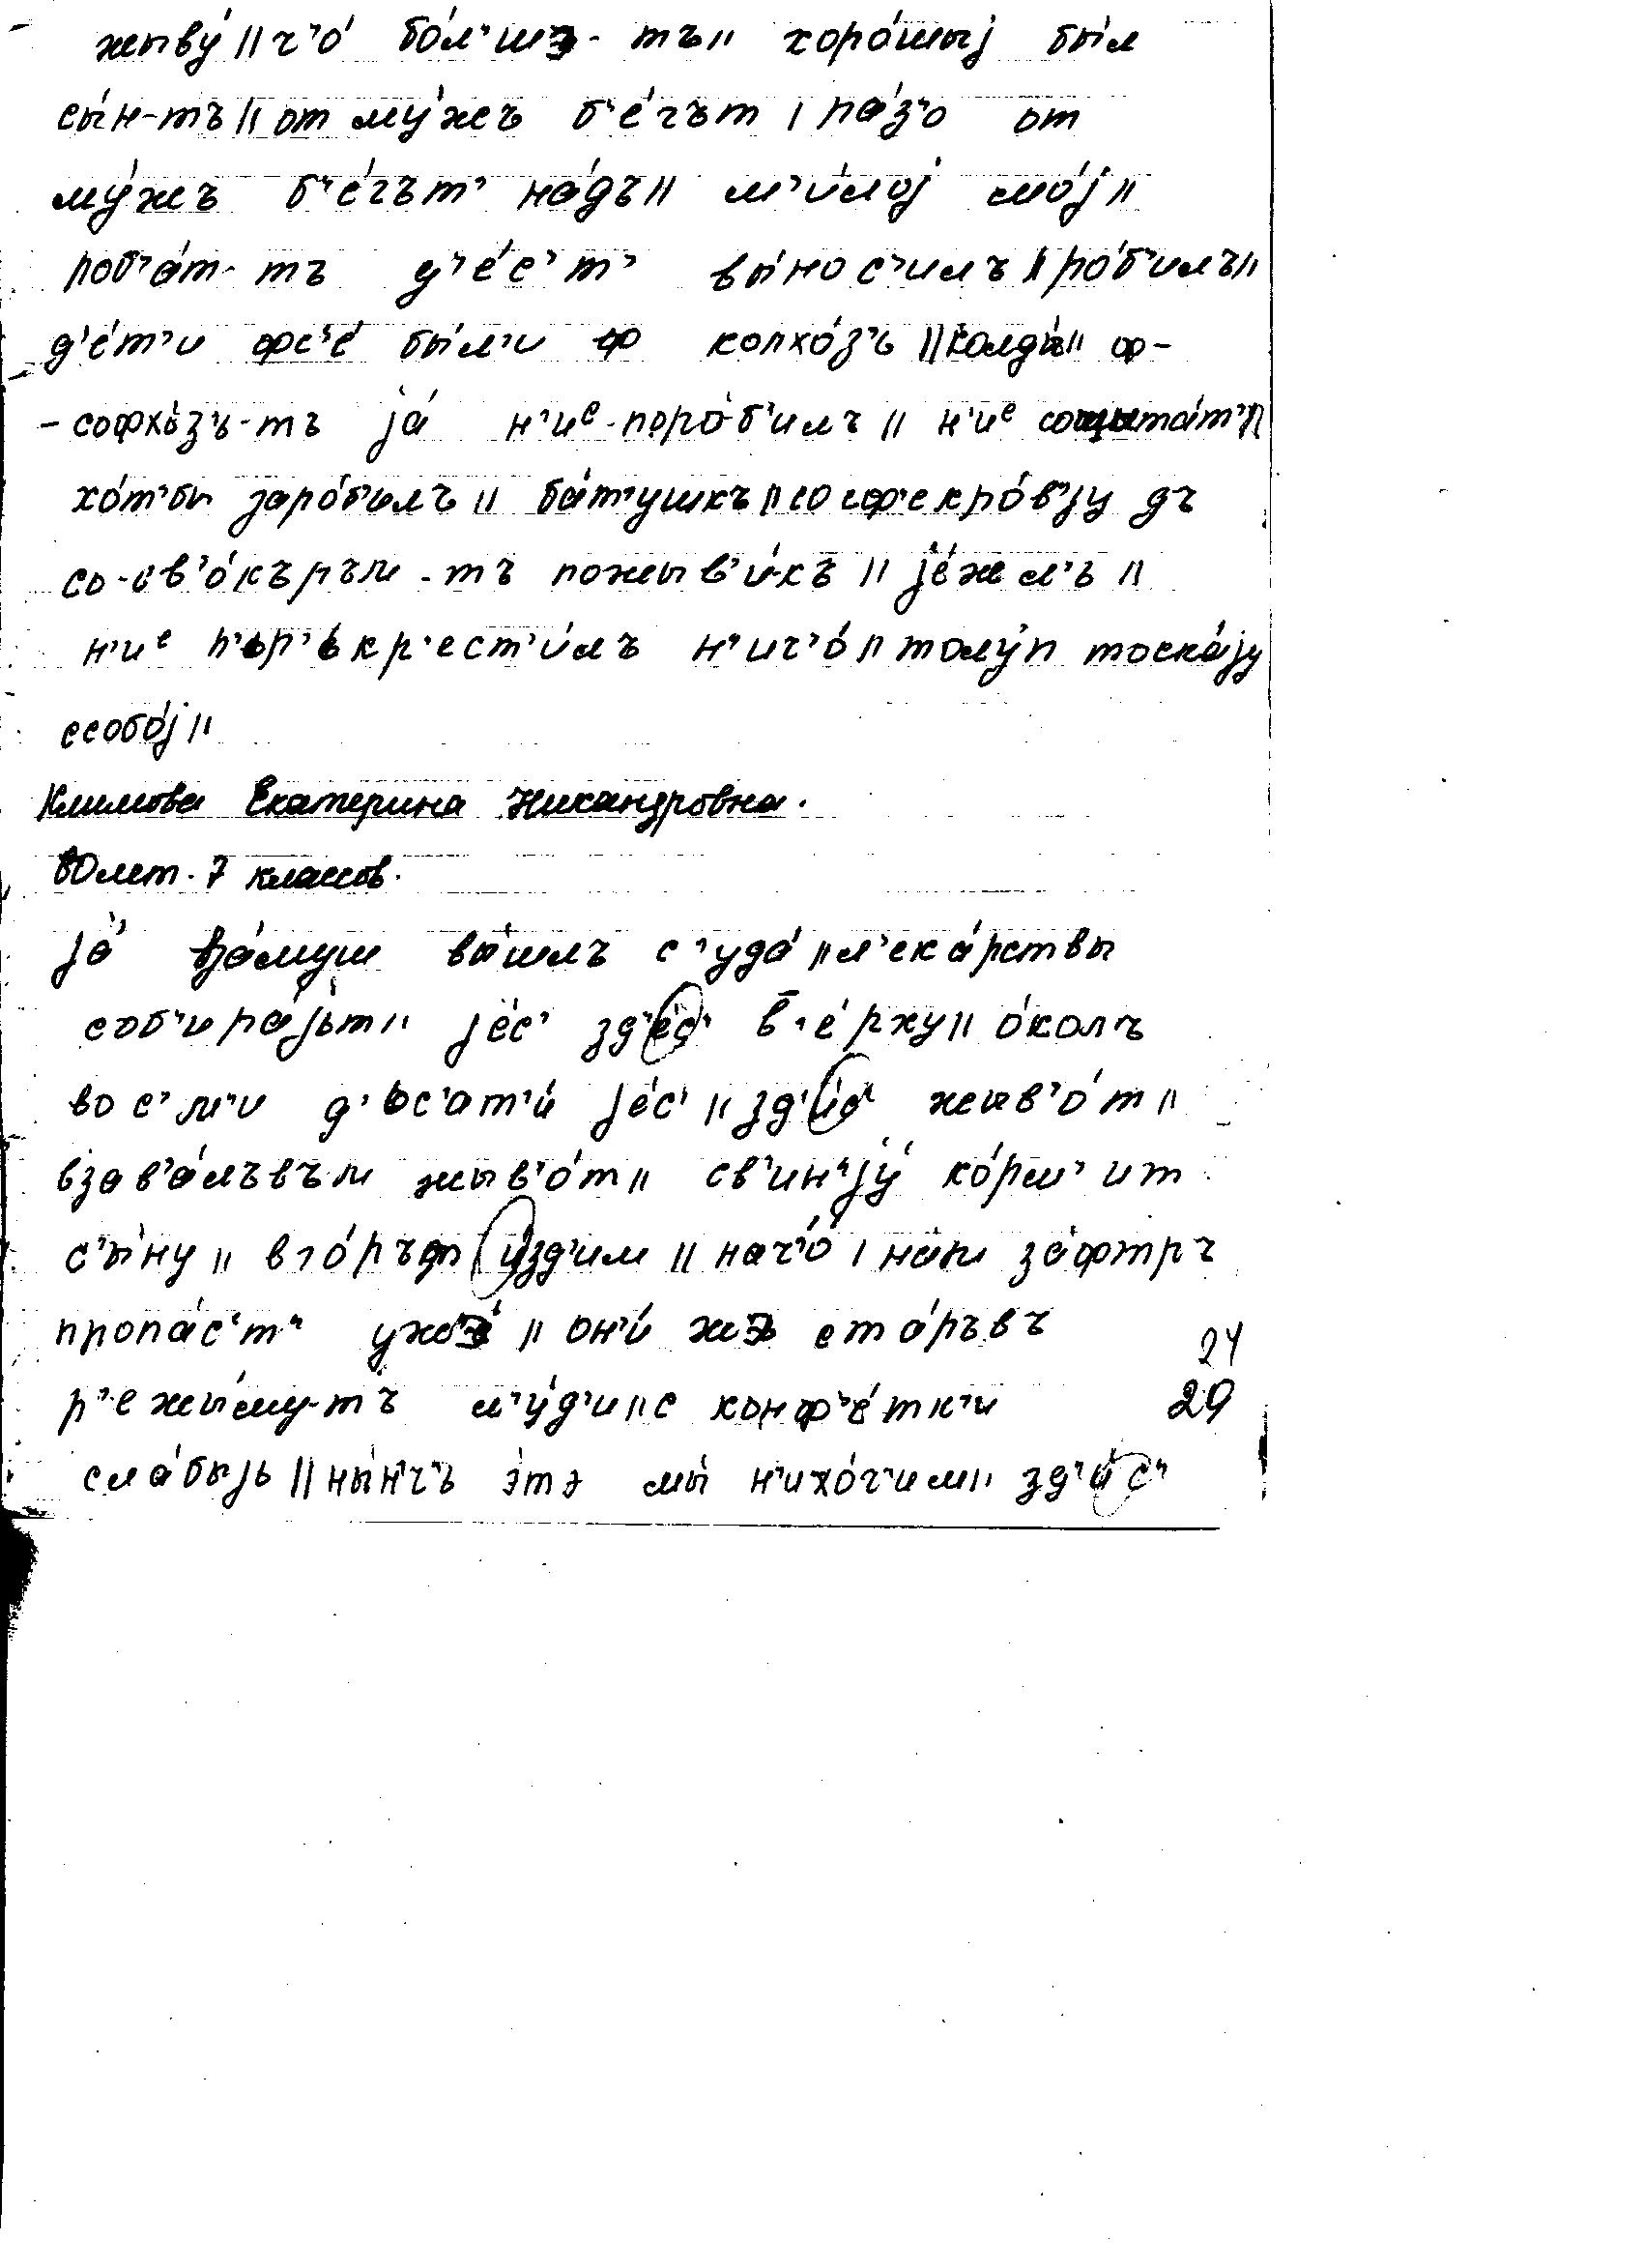 жыву́ || ч'о́ бо́л'шэ-тъ || хоро́шыj бы́л
сы́н-тъ || от му́жъ б'е́гът | ра́з'о от
му́жъ б'е́гът' на́дъ || м'и́лоj мо́j ||
роб'а́т-тъ д'е́с'т' вы́нос'илъ || ро́б'илъ ||
д'е́т'и фс'е́ бы́л'и ф колхо́з'ъ || ф-
-софхо́з'ъ-тъ jа́ н'ие-поро́б'илъ || н'ие
хо́т'бы заро́билъ || ба́т'ушкъ || со свекро́в'jу дъ
со-св'о́къръм-тъ пожыв'и́-къ || jе́жл'ъ ||
н'ие п'ьр'ькр'ест'и́лъ н'ич'о́ || толу́п таска́jу
ссобо́j ||
Климова Екатерина Никандровна.
80 лет. 7 классов.
jа́ за́муш вы́шлъ с'уда́ || л'ека́рствы
соб'ира́jьт || jе́с' зд'е́с' в'е́рху || о́колъ
вос'м'и д'ьс'ат'и́ jе́с' || зд'и́с' жыв'о́т ||
взав'а́лъвъм жыв'о́т || св'ин'jу́ ко́рм'ит
с'ы́ну || вго́рът у́зд'им || нач'о́ | нам за́фтръ
пропа́с'т' ужэ́ || он'и́ жэ ста́ръвъ
р'ежы́му-тъ л'у́д'и || с конф'е́тк'и
сла́быjь || ны́н'ч'ъ э́тэ мы́ н'ихо́ч'им || зд'и́с'
24
29